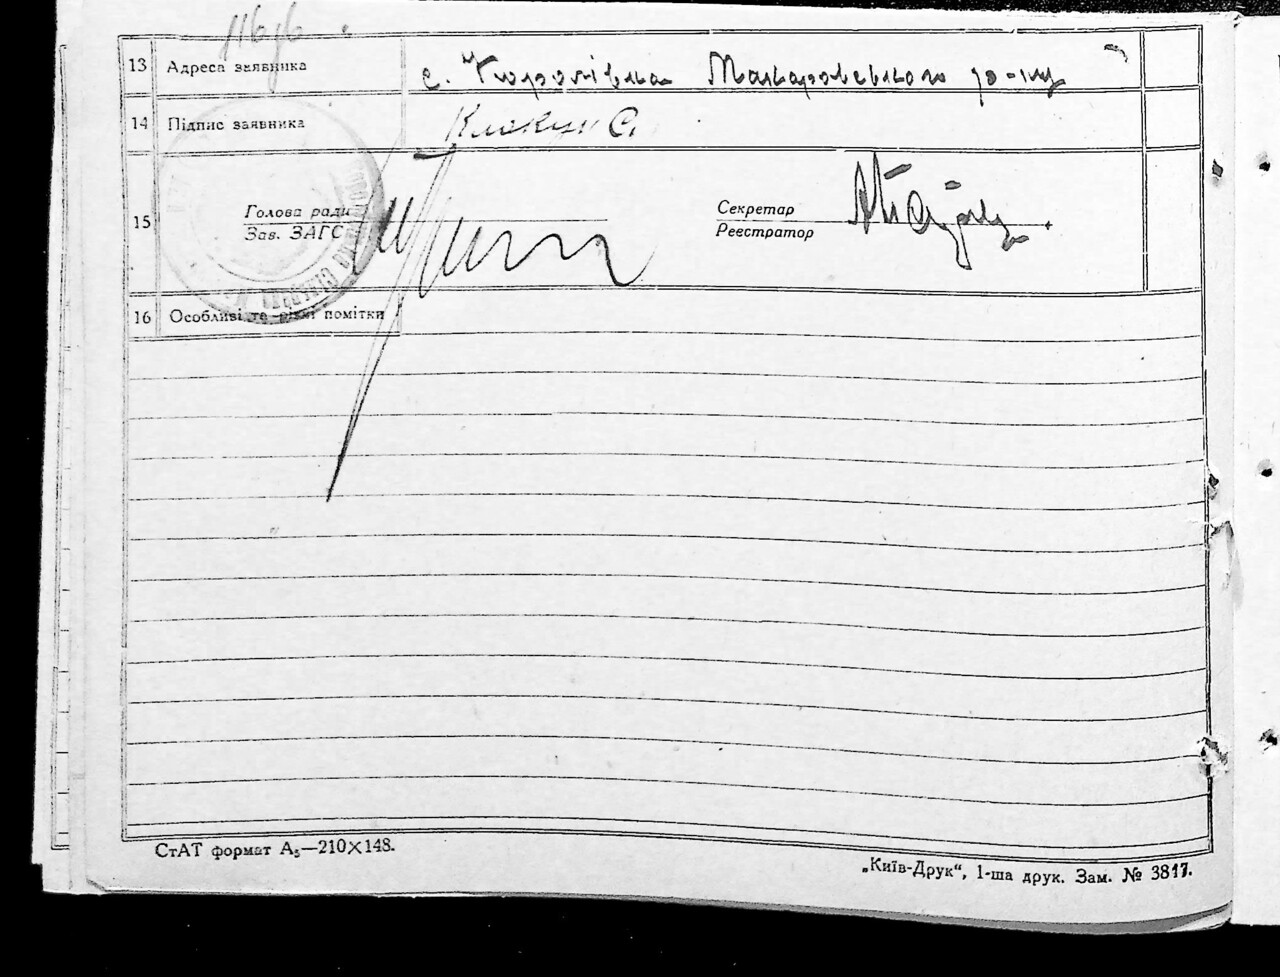 13 Адреса заявника с. Королівка Макаровського р-ну
14 Підпис заявника Клокун С.
15 Голова ради
Зав. ЗАГС
Секретар
Реєстратор
16 Особливі та різні помітки
СтАТ формат А₅—210×148.
„Київ-Друк“, 1-ша друк. Зам. № 3817.